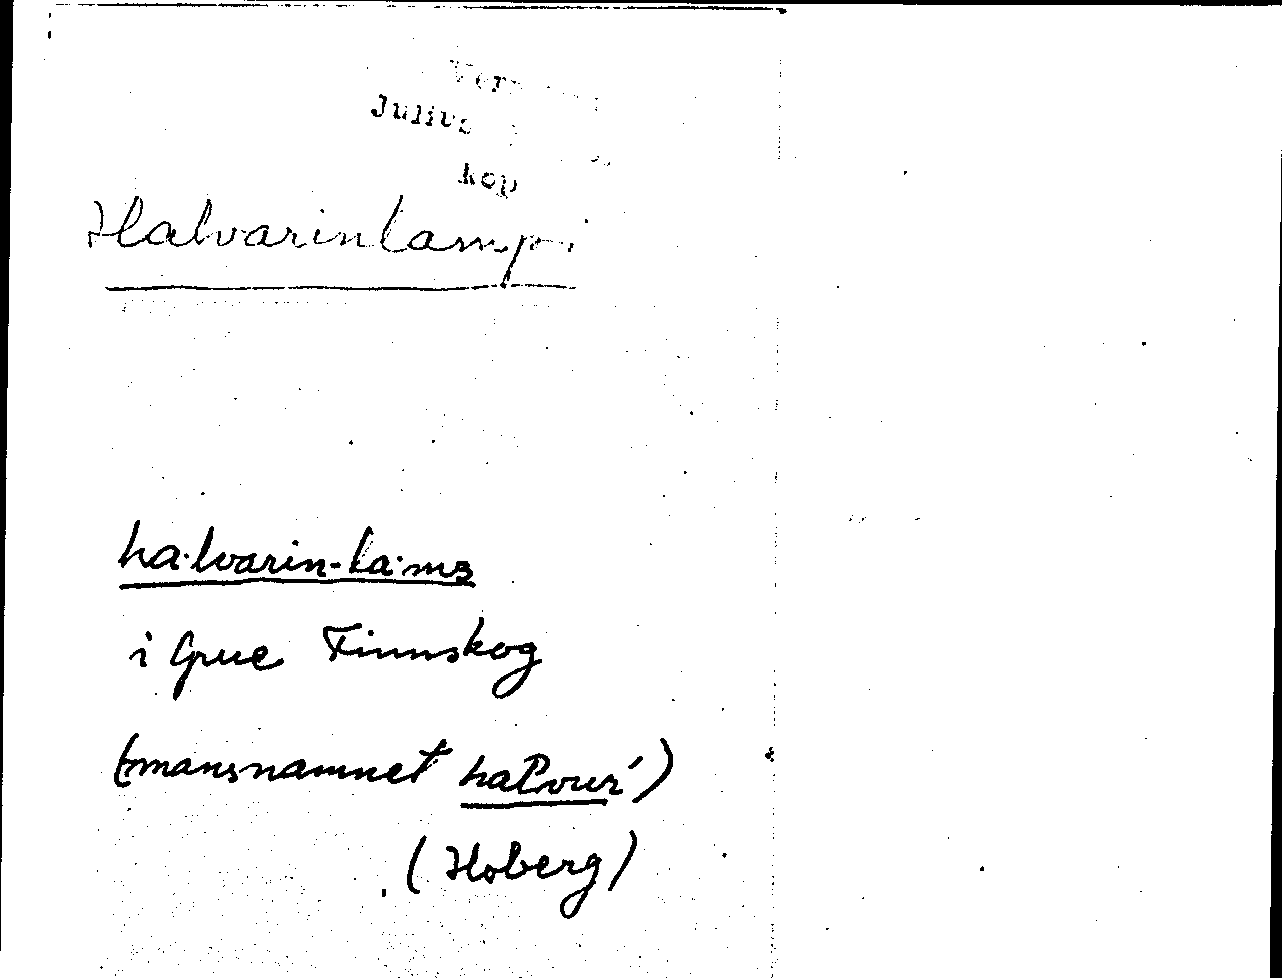 Julius
kop
Halvarinlampi
ha·lvarin-la·mʒ
i Grue Finnskog
(mansnamnet halvuŕ)
(Hoberg)